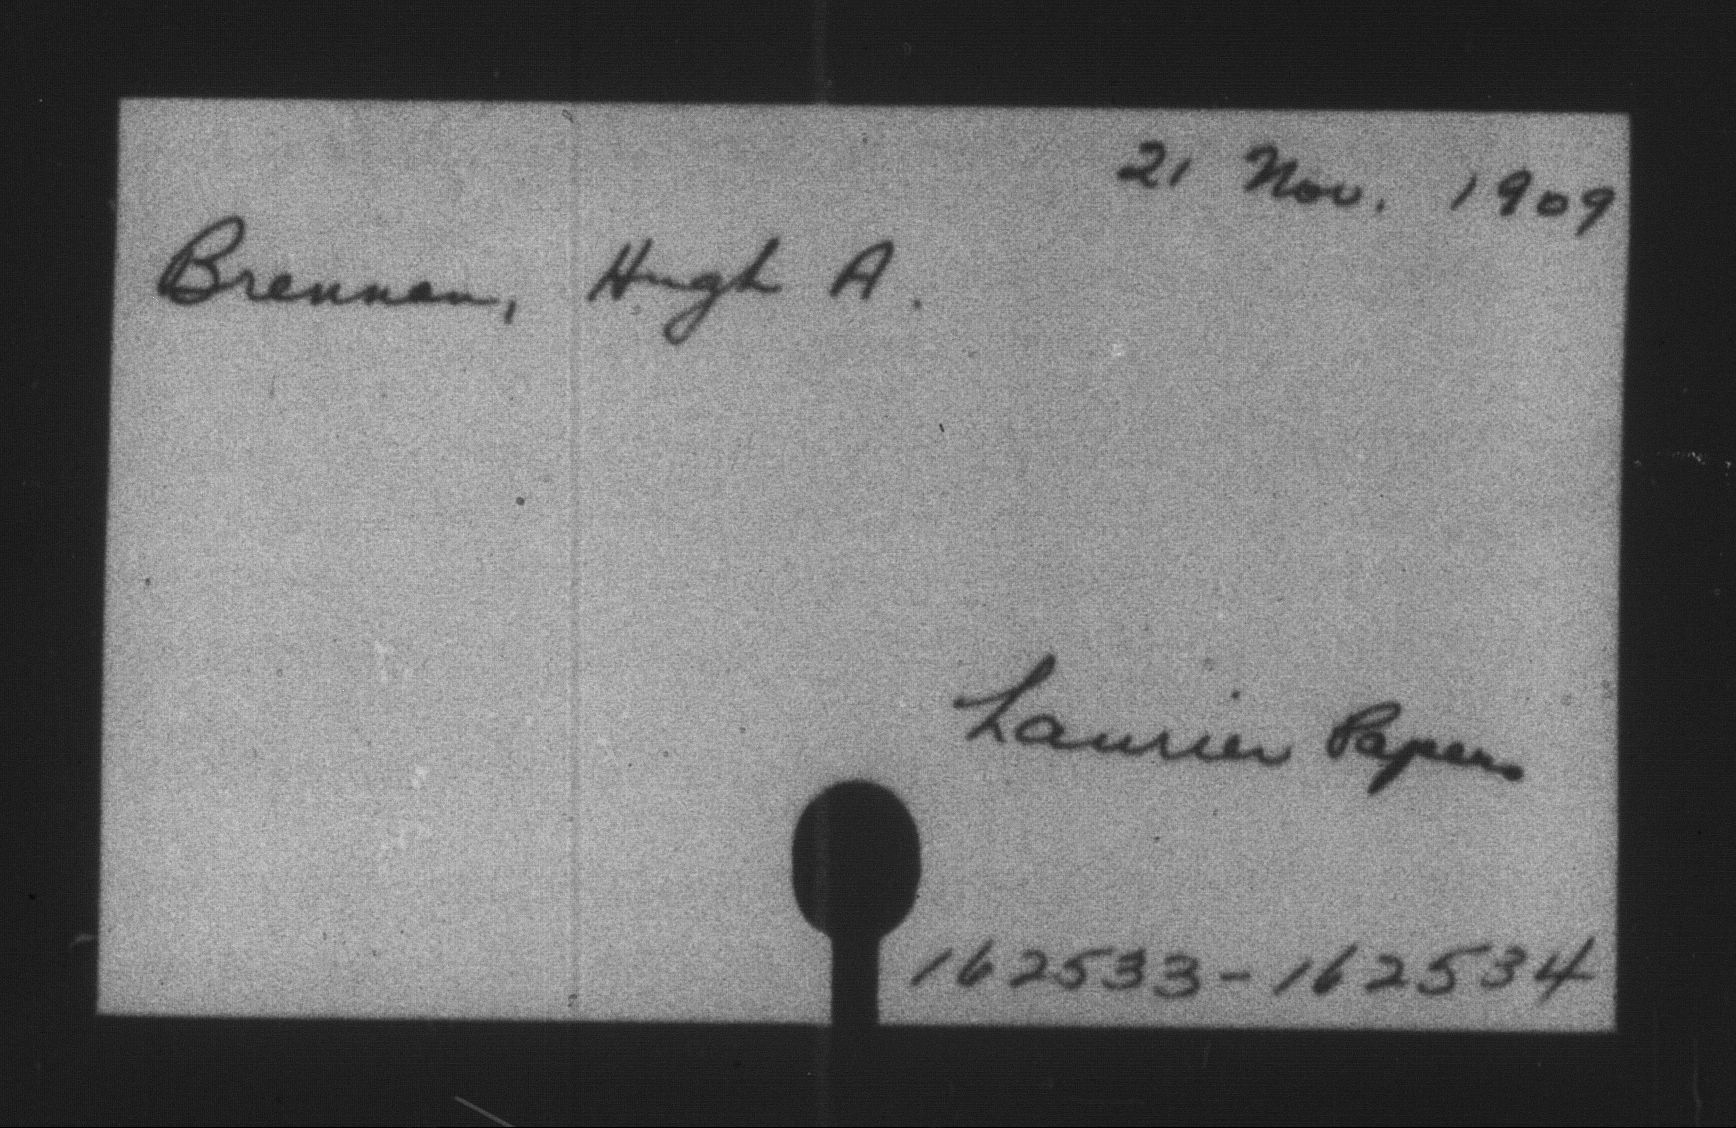 21 Nov. 1909
Brennan, Hugh A.
Laurier Papers
162533-162534